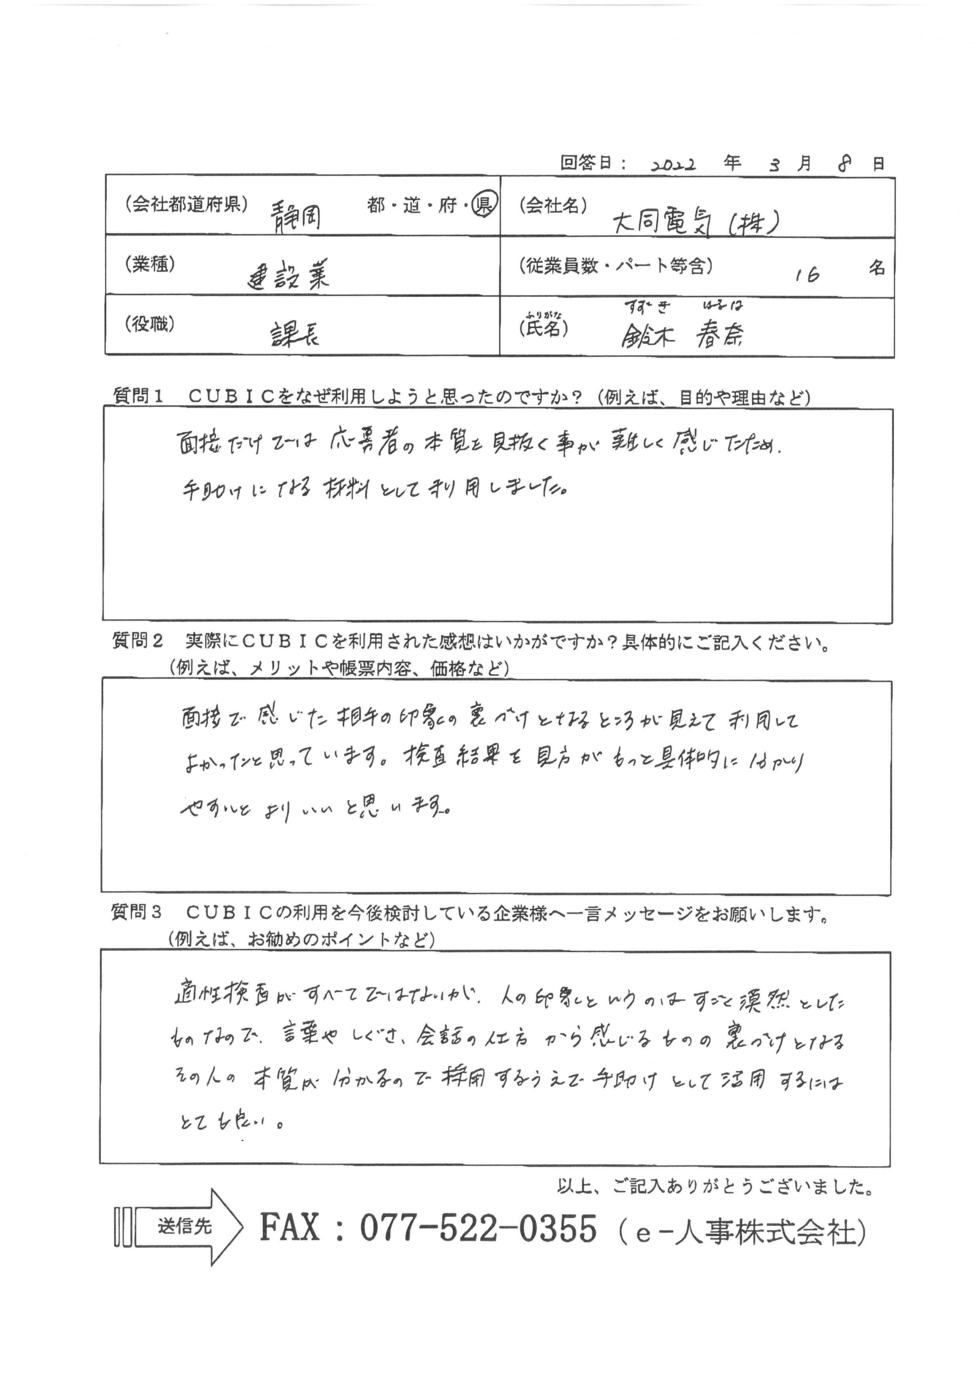 回答日： 2022 年 3 月 8 日
（会社都道府県） 静岡 都・道・府・県
（会社名） 大同電気（株）
（業種） 建設業
（従業員数・パート等含） 16 名
（役職） 課長
すずき はるな
ふりがな
（氏名） 鈴木 春奈
質問１ ＣＵＢＩＣをなぜ利用しようと思ったのですか？（例えば、目的や理由など）
面接だけでは応募者の本質を見抜く事が難しく感じたため、
手助けになる材料として利用しました。
質問２ 実際にＣＵＢＩＣを利用された感想はいかがですか？具体的にご記入ください。
（例えば、メリットや帳票内容、価格など）
面接で感じた相手の印象の裏づけとなるところが見えて利用して
よかったと思っています。検査結果を見方がもっと具体的に分かり
やすいとよりいいと思います。
質問３ ＣＵＢＩＣの利用を今後検討している企業様へ一言メッセージをお願いします。
（例えば、お勧めのポイントなど）
適性検査がすべてではないが、人の印象というのはすごく漠然とした
ものなので、言葉やしぐさ、会話の仕方から感じるものの裏づけとなる
その人の本質が分かるので採用するうえで手助けとして活用するには
とても良い。
以上、ご記入ありがとうございました。
送信先 FAX：077-522-0355（ｅ-人事株式会社）